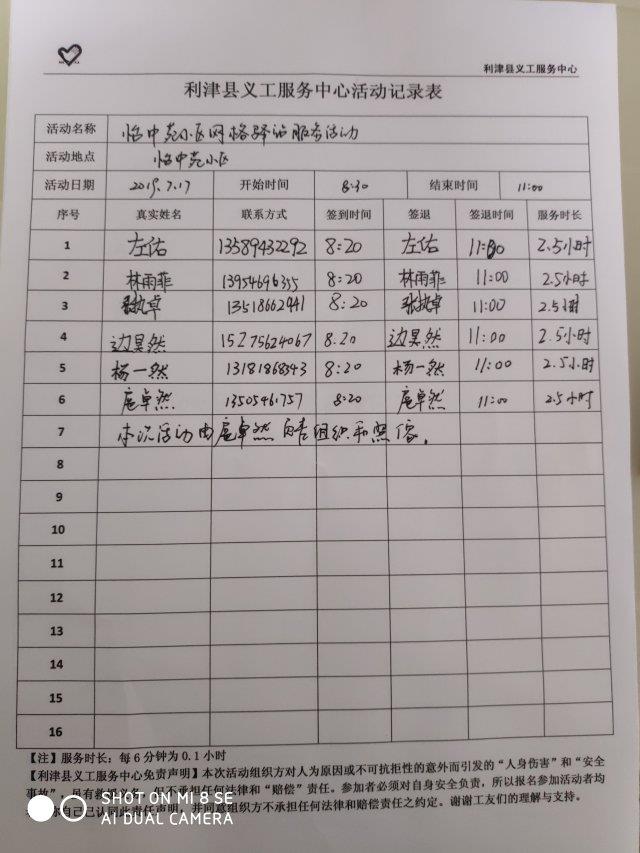 利津县义工服务中心
利津县义工服务中心活动记录表
活动名称 怡中苑小区网格驿站服务活动
活动地点 怡中苑小区
活动日期 2019.7.17 开始时间 8:30 结束时间 11:00
序号 真实姓名 联系方式 签到时间 签退 签退时间 服务时长
1 左佑 13589432292 8:20 左佑 11:00 2.5小时
2 林雨菲 13954696355 8:20 林雨菲 11:00 2.5小时
3 8:20 11:00 2.5小时
4 边昊然 15275624067 8.20 边昊然 11:00 2.5小时
5 杨一然 13181868843 8:20 杨一然 11:00 2.5小时
6 扈卓然 13505461757 8:20 扈卓然 11:00 2.5小时
7 本次活动由扈卓然负责组织和照像。
8
9
10
11
12
13
14
15
16
【注】服务时长：每6分钟为0.1小时
【利津县义工服务中心免责声明】本次活动组织方对人为原因或不可抗拒性的意外而引发的“人身伤害”和“安全
事故”，但不承担任何法律和“赔偿”责任。参加者必须对自身安全负责，所以报名参加活动者均
责任声明，并同意组织方不承担任何法律和赔偿责任之约定。谢谢工友们的理解与支持。
SHOT ON MI 8 SE
AI DUAL CAMERA